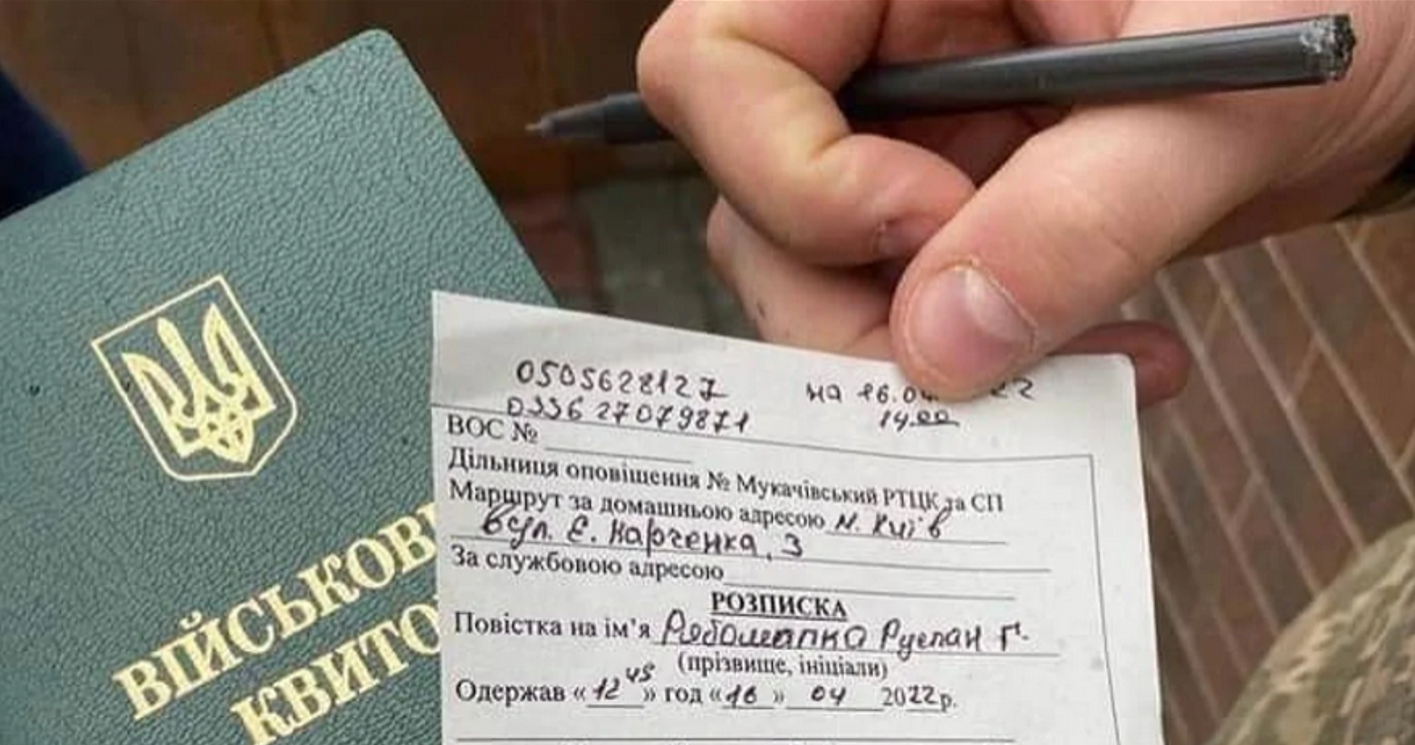 ВІЙСЬКОВ
КВИТО
0505628127
на 16.04 22
0336 27079871
14.00
ВОС №
Дільниця оповіщення № Мукачівський РТЦК та СП
Маршрут за домашньою адресою м. Київ
вул. Є. Харченка, 3
За службовою адресою
РОЗПИСКА
Повістка на ім’я Рябошапка Руслан Г.
(прізвище, ініціали)
Одержав «12 45» год «16» 04 2022р.